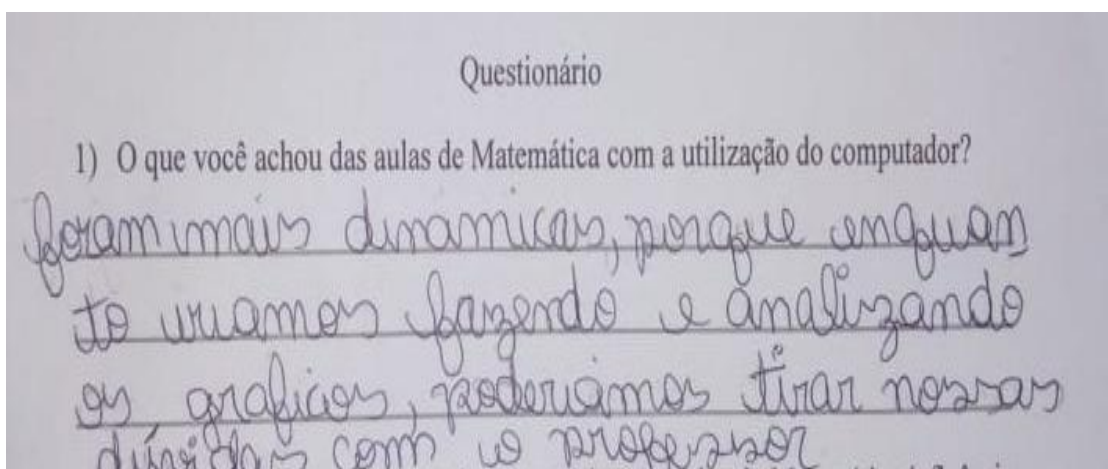 Questionário
1) O que você achou das aulas de Matemática com a utilização do computador?
foram mais dinamicas, porque enquan
to iriamos fazendo e analizando
os graficos, poderiamos tirar nossas
dúvidas com o professor